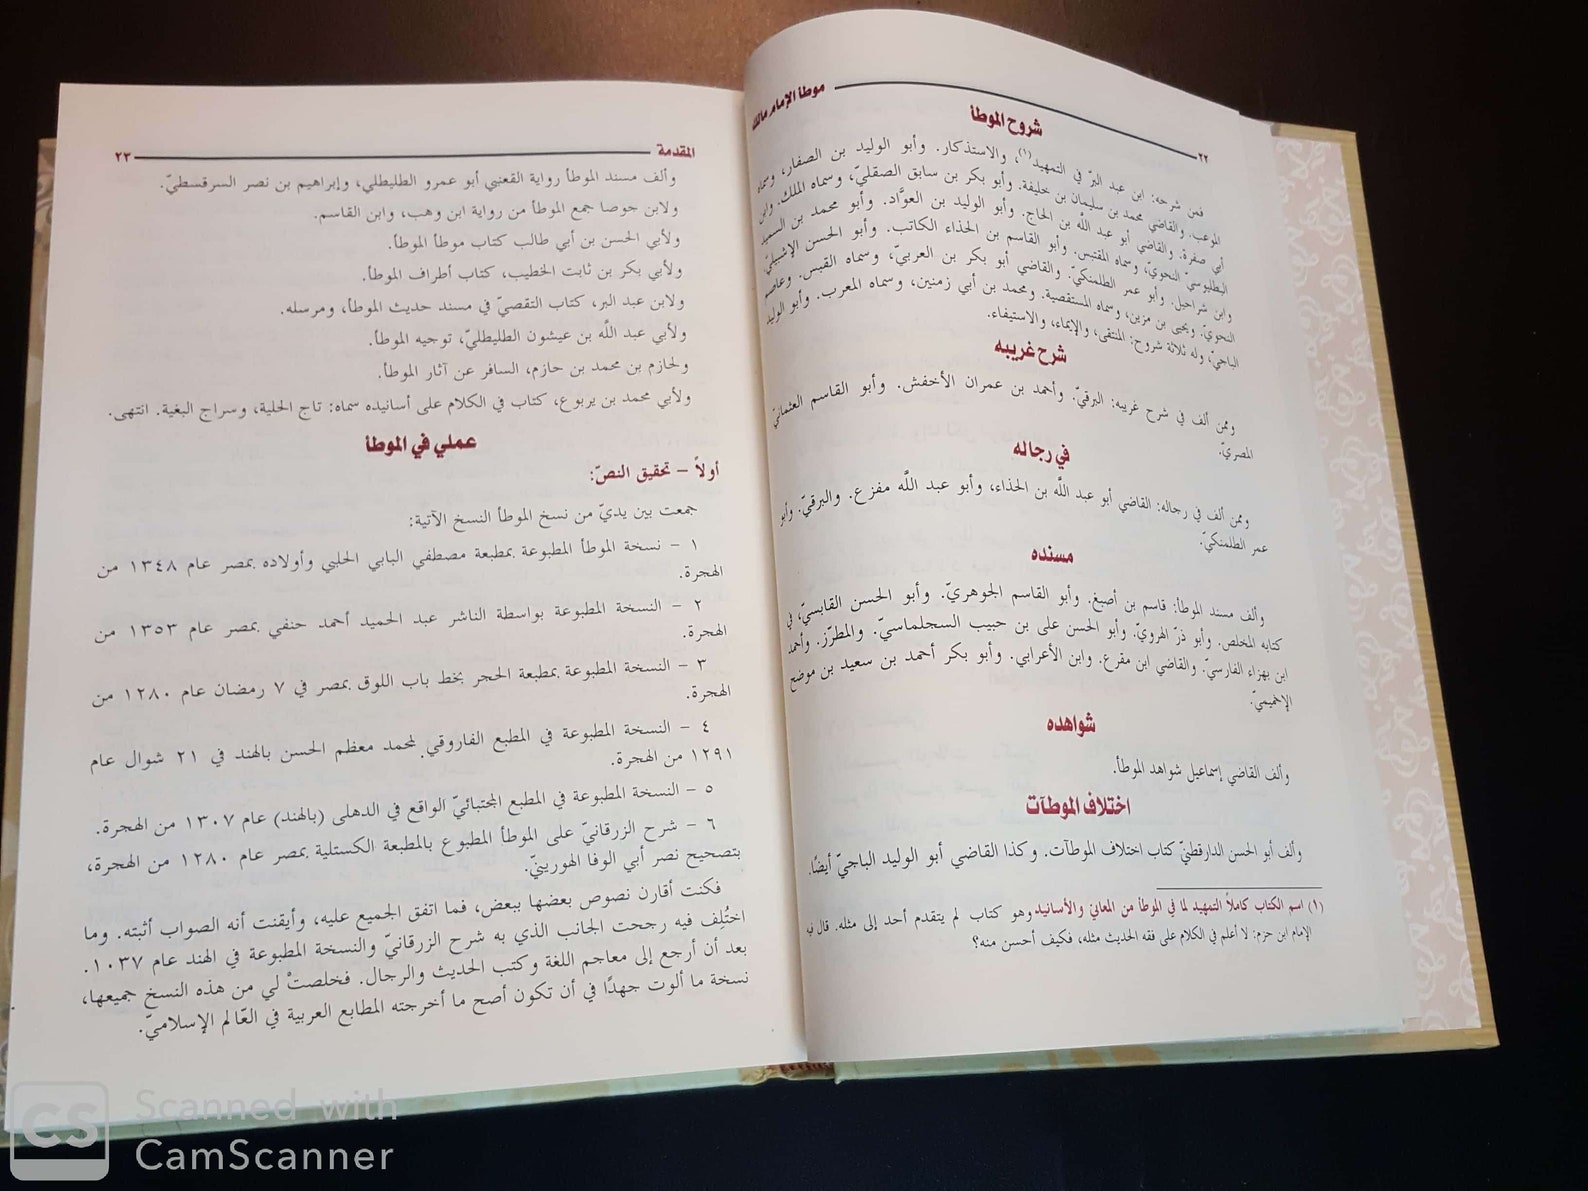 ٢٢
موطأ الإمام مالك
شروح الموطأ
فمن شرحه: ابن عبد البرّ في التمهيد(١)، والاستذكار. وأبو الوليد بن الصفار، وسماه
الموعب. والقاضي محمد بن سليمان بن خليفة. وأبو بكر بن سابق الصقليّ، وسماه الملك. وابن
أبي صفرة. والقاضي أبو عبد اللَّه بن الحاج. وأبو الوليد بن العوَّاد. وأبو محمد بن السعيد
البطليوسيّ النحويّ، وسماه المقتبس. وأبو القاسم بن الحذاء الكاتب. وأبو الحسن الإشبيليّ
وابن شراحيل. وأبو عمر الطلمنكيّ. والقاضي أبو بكر بن العربيّ، وسماه القبس. وعاصم
النحويّ. ويحيى بن مزين، وسماه المستقصية. ومحمد بن أبي زمنين، وسماه المعرب. وأبو الوليد
الباجيّ، وله ثلاثة شروح: المنتقى، والإيماء، والاستيفاء.
شرح غريبه
وممن ألف في شرح غريبه: البرقيّ. وأحمد بن عمران الأخفش. وأبو القاسم العثمانيّ
المصريّ.
في رجاله
وممن ألف في رجاله: القاضي أبو عبد اللَّه بن الحذاء، وأبو عبد اللَّه مفزع. والبرقيّ. وأبو
عمر الطلمنكيّ.
مسنده
وألف مسند الموطأ: قاسم بن أصبغ. وأبو القاسم الجوهريّ. وأبو الحسن القابسيّ، في
كتابه المخلص. وأبو ذرّ الهرويّ. وأبو الحسن على بن حبيب السجلماسيّ. والمطرّز. وأحمد
ابن بهزاء الفارسيّ. والقاضي ابن مقرع. وابن الأعرابي. وأبو بكر أحمد بن سعيد بن موضح
الإخميميّ.
شواهده
وألف القاضي إسماعيل شواهد الموطأ.
اختلاف الموطآت
وألف أبو الحسن الدارقطنيّ كتاب اختلاف الموطآت. وكذا القاضي أبو الوليد الباجيّ أيضًا.
(١) اسم الكتاب كاملاً التمهيد لما في الموطأ من المعاني والأسانيد وهو كتاب لم يتقدم أحد إلى مثله. قال فيه
الإمام ابن حزم: لا أعلم في الكلام على فقه الحديث مثله، فكيف أحسن منه؟
المقدمة
٢٣
وألف مسند الموطأ رواية القعنبي أبو عمرو الطليطلي، وإبراهيم بن نصر السرقسطيّ.
ولابن جوصا جمع الموطأ من رواية ابن وهب، وابن القاسم.
ولأبي الحسن بن أبي طالب كتاب موطأ الموطأ.
ولأبي بكر بن ثابت الخطيب، كتاب أطراف الموطأ.
ولابن عبد البر، كتاب التقصيّ في مسند حديث الموطأ، ومرسله.
ولأبي عبد اللَّه بن عيشون الطليطليّ، توجيه الموطأ.
ولحازم بن محمد بن حازم، السافر عن آثار الموطأ.
ولأبي محمد بن يربوع، كتاب في الكلام على أسانيده سماه: تاج الحلية، وسراج البغية. انتهى.
عملي في الموطأ
أولاً – تحقيق النصّ:
جمعت بين يديّ من نسخ الموطأ النسخ الآتية:
١ - نسخة الموطأ المطبوعة بمطبعة مصطفي البابي الحلبي وأولاده بمصر عام ١٣٤٨ من
الهجرة.
٢ - النسخة المطبوعة بواسطة الناشر عبد الحميد أحمد حنفي بمصر عام ١٣٥٣ من
الهجرة.
٣ - النسخة المطبوعة بمطبعة الحجر بخط باب اللوق بمصر في ٧ رمضان عام ١٢٨٠ من
الهجرة.
٤ - النسخة المطبوعة في المطبع الفاروقي لمحمد معظم الحسن بالهند في ٢١ شوال عام
١٢٩١ من الهجرة.
٥ - النسخة المطبوعة في المطبع المجتبائيّ الواقع في الدهلى (بالهند) عام ١٣٠٧ من الهجرة.
٦ - شرح الزرقانيّ على الموطأ المطبوع بالمطبعة الكستلية بمصر عام ١٢٨٠ من الهجرة،
بتصحيح نصر أبي الوفا الهورينيّ.
فكنت أقارن نصوص بعضها ببعض، فما اتفق الجميع عليه، وأيقنت أنه الصواب أثبته. وما
اختُلِف فيه رجحت الجانب الذي به شرح الزرقانيّ والنسخة المطبوعة في الهند عام ١٠٣٧.
بعد أن أرجع إلى معاجم اللغة وكتب الحديث والرجال. فخلصتْ لي من هذه النسخ جميعها،
نسخة ما ألوت جهدًا في أن تكون أصح ما أخرجته المطابع العربية في العّالم الإسلاميّ.
CS
Scanned with
CamScanner